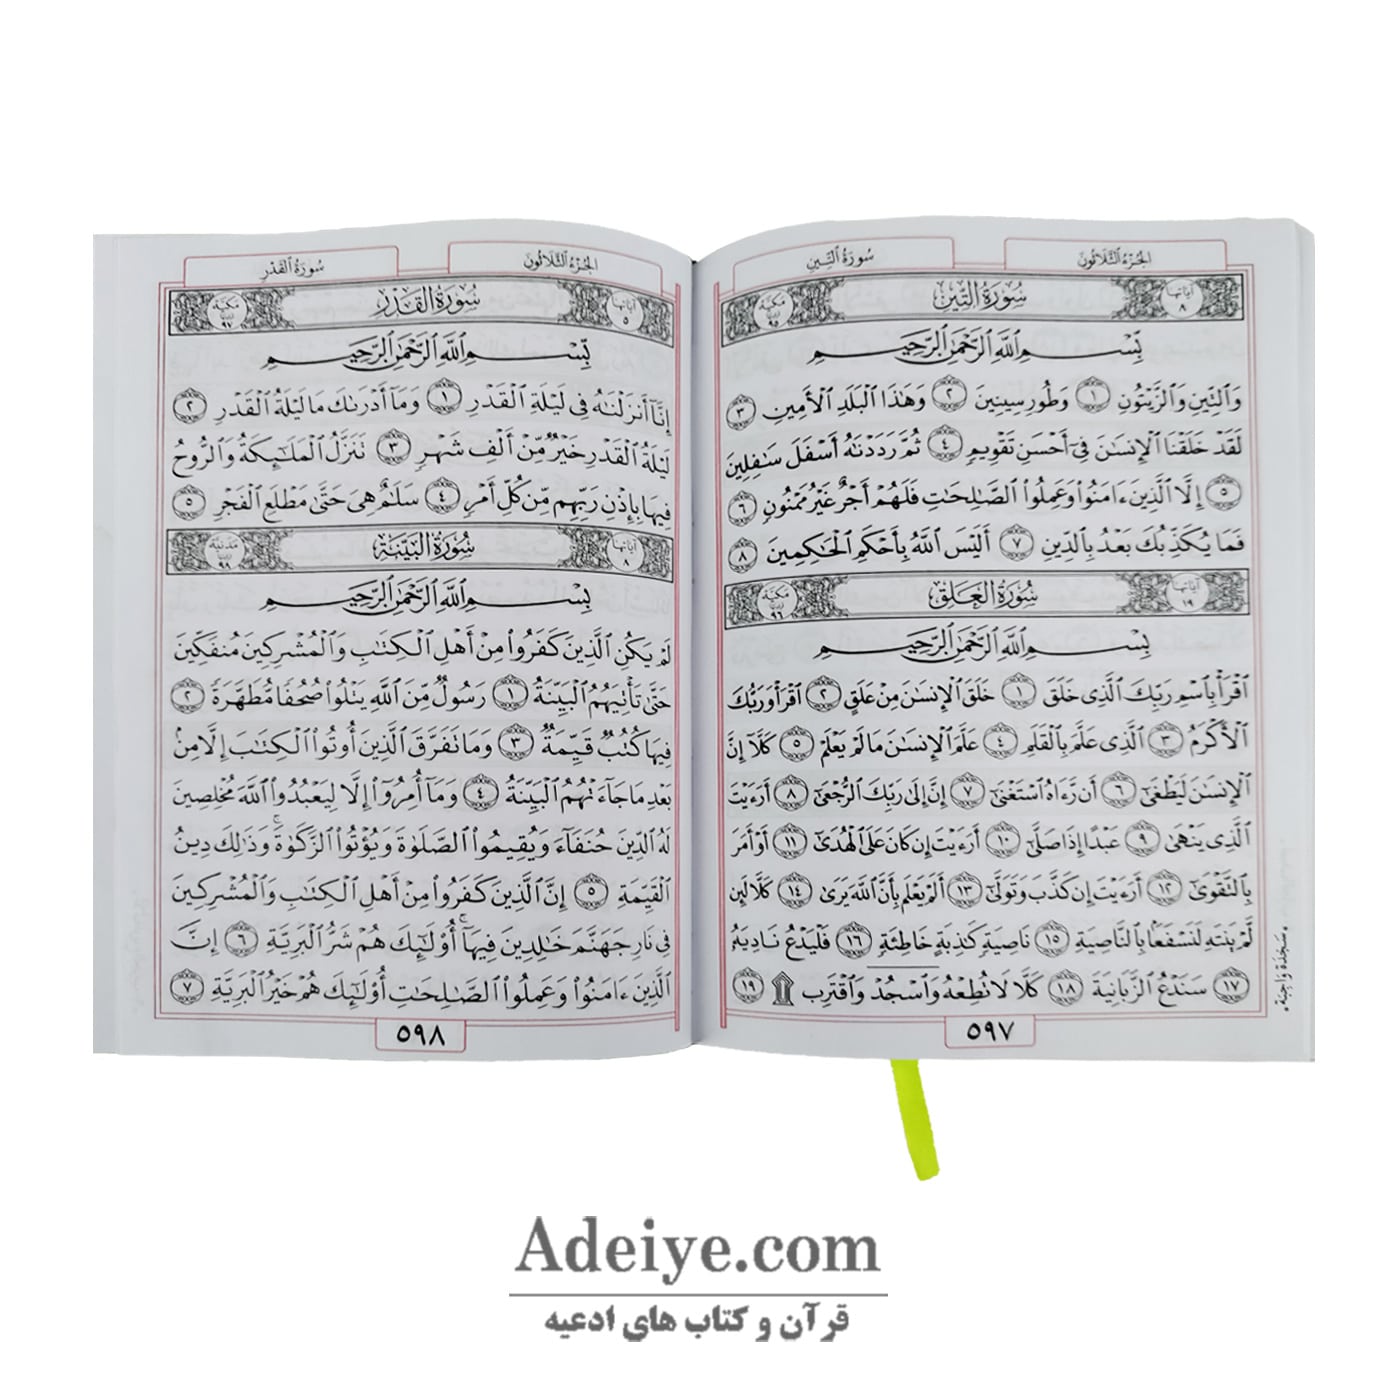 الجزء الثلاثون
سورة التين
آياتها ٨
سُورَةُ التِّينِ
مكية
٩٥
بِّسْمِ ٱللَّهِ ٱلرَّحْمَٰنِ ٱلرَّحِيمِ
وَٱلتِّينِ وَٱلزَّيْتُونِ ١ وَطُورِ سِينِينَ ٢ وَهَٰذَا ٱلْبَلَدِ ٱلْأَمِينِ ٣
لَقَدْ خَلَقْنَا ٱلْإِنسَٰنَ فِىٓ أَحْسَنِ تَقْوِيمٍ ٤ ثُمَّ رَدَدْنَٰهُ أَسْفَلَ سَٰفِلِينَ
٥ إِلَّا ٱلَّذِينَ ءَامَنُوا۟ وَعَمِلُوا۟ ٱلصَّٰلِحَٰتِ فَلَهُمْ أَجْرٌ غَيْرُ مَمْنُونٍ ٦
فَمَا يُكَذِّبُكَ بَعْدُ بِٱلدِّينِ ٧ أَلَيْسَ ٱللَّهُ بِأَحْكَمِ ٱلْحَٰكِمِينَ ٨
آياتها ١٩
سُورَةُ العَلَقِ
مكية
٩٦
بِّسْمِ ٱللَّهِ ٱلرَّحْمَٰنِ ٱلرَّحِيمِ
ٱقْرَأْ بِٱسْمِ رَبِّكَ ٱلَّذِى خَلَقَ ١ خَلَقَ ٱلْإِنسَٰنَ مِنْ عَلَقٍ ٢ ٱقْرَأْ وَرَبُّكَ
ٱلْأَكْرَمُ ٣ ٱلَّذِى عَلَّمَ بِٱلْقَلَمِ ٤ عَلَّمَ ٱلْإِنسَٰنَ مَا لَمْ يَعْلَمْ ٥ كَلَّآ إِنَّ
ٱلْإِنسَٰنَ لَيَطْغَىٰٓ ٦ أَن رَّءَاهُ ٱسْتَغْنَىٰٓ ٧ إِنَّ إِلَىٰ رَبِّكَ ٱلرُّجْعَىٰٓ ٨ أَرَءَيْتَ
ٱلَّذِى يَنْهَىٰ ٩ عَبْدًا إِذَا صَلَّىٰٓ ١٠ أَرَءَيْتَ إِن كَانَ عَلَى ٱلْهُدَىٰٓ ١١ أَوْ أَمَرَ
بِٱلتَّقْوَىٰٓ ١٢ أَرَءَيْتَ إِن كَذَّبَ وَتَوَلَّىٰٓ ١٣ أَلَمْ يَعْلَم بِأَنَّ ٱللَّهَ يَرَىٰ ١٤ كَلَّا لَئِن
لَّمْ يَنتَهِ لَنَسْفَعًۢا بِٱلنَّاصِيَةِ ١٥ نَاصِيَةٍ كَٰذِبَةٍ خَاطِئَةٍ ١٦ فَلْيَدْعُ نَادِيَهُۥ
١٧ سَنَدْعُ ٱلزَّبَانِيَةَ ١٨ كَلَّا لَا تُطِعْهُ وَٱسْجُدْ وَٱقْتَرِب ۩ ١٩
سجدة واجبة
٥٩٧
الجزء الثلاثون
سورة القدر
آياتها ٥
سُورَةُ القَدْرِ
مكية
٩٧
بِّسْمِ ٱللَّهِ ٱلرَّحْمَٰنِ ٱلرَّحِيمِ
إِنَّآ أَنزَلْنَٰهُ فِى لَيْلَةِ ٱلْقَدْرِ ١ وَمَآ أَدْرَىٰكَ مَا لَيْلَةُ ٱلْقَدْرِ ٢
لَيْلَةُ ٱلْقَدْرِ خَيْرٌ مِّنْ أَلْفِ شَهْرٍ ٣ تَنَزَّلُ ٱلْمَلَٰٓئِكَةُ وَٱلرُّوحُ
فِيهَا بِإِذْنِ رَبِّهِم مِّن كُلِّ أَمْرٍ ٤ سَلَٰمٌ هِىَ حَتَّىٰ مَطْلَعِ ٱلْفَجْرِ ٥
آياتها ٨
سُورَةُ البَيِّنَةِ
مدنية
٩٨
بِسْمِ ٱللَّهِ ٱلرَّحْمَٰنِ ٱلرَّحِيمِ
لَمْ يَكُنِ ٱلَّذِينَ كَفَرُوا۟ مِنْ أَهْلِ ٱلْكِتَٰبِ وَٱلْمُشْرِكِينَ مُنفَكِّينَ
حَتَّىٰ تَأْتِيَهُمُ ٱلْبَيِّنَةُ ١ رَسُولٌ مِّنَ ٱللَّهِ يَتْلُوا۟ صُحُفًا مُّطَهَّرَةً ٢
فِيهَا كُتُبٌ قَيِّمَةٌ ٣ وَمَا تَفَرَّقَ ٱلَّذِينَ أُوتُوا۟ ٱلْكِتَٰبَ إِلَّا مِنۢ
بَعْدِ مَا جَآءَتْهُمُ ٱلْبَيِّنَةُ ٤ وَمَآ أُمِرُوٓا۟ إِلَّا لِيَعْبُدُوا۟ ٱللَّهَ مُخْلِصِينَ
لَهُ ٱلدِّينَ حُنَفَآءَ وَيُقِيمُوا۟ ٱلصَّلَوٰةَ وَيُؤْتُوا۟ ٱلزَّكَوٰةَ ۚ وَذَٰلِكَ دِينُ
ٱلْقَيِّمَةِ ٥ إِنَّ ٱلَّذِينَ كَفَرُوا۟ مِنْ أَهْلِ ٱلْكِتَٰبِ وَٱلْمُشْرِكِينَ
فِى نَارِ جَهَنَّمَ خَٰلِدِينَ فِيهَآ ۚ أُو۟لَٰٓئِكَ هُمْ شَرُّ ٱلْبَرِيَّةِ ٦ إِنَّ
ٱلَّذِينَ ءَامَنُوا۟ وَعَمِلُوا۟ ٱلصَّٰلِحَٰتِ أُو۟لَٰٓئِكَ هُمْ خَيْرُ ٱلْبَرِيَّةِ ٧
٥٩٨
Adeiye.com
قرآن و کتاب های ادعیه